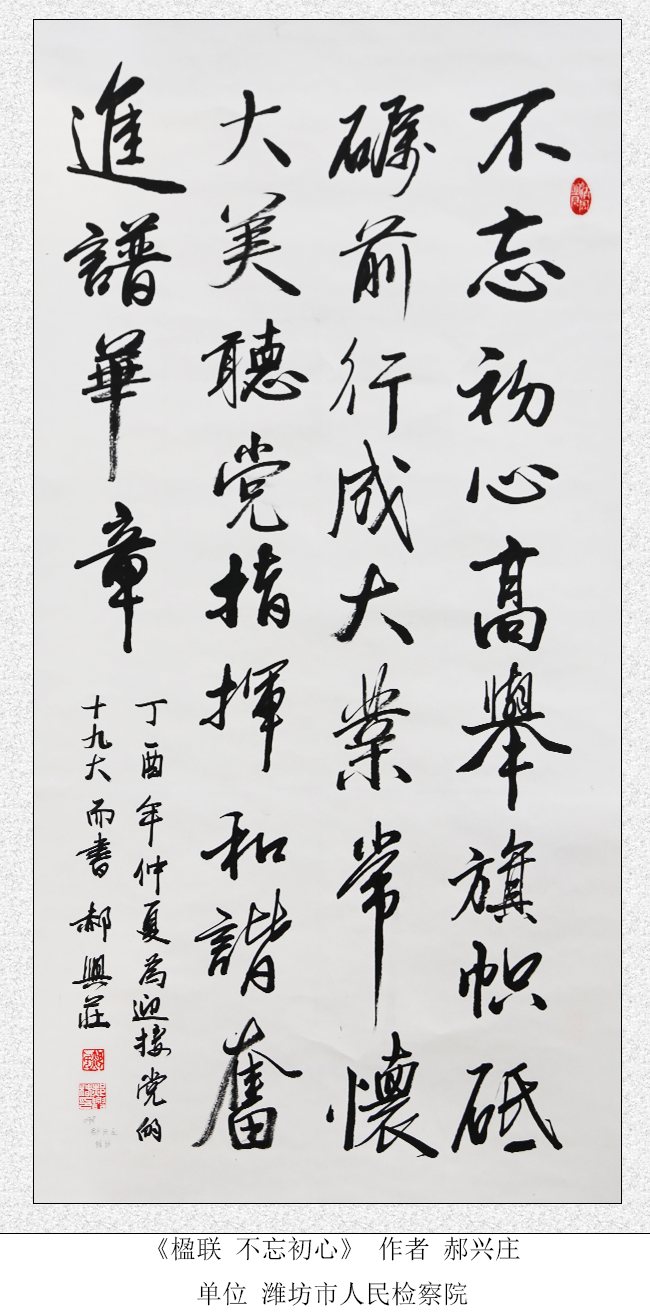 不忘初心高舉旗帜砥
礪前行成大業常懷
大美聽党指揮和諧奮
進譜華章
丁酉年仲夏為迎接党的
十九大而書 郝興莊
《楹联 不忘初心》 作者 郝兴庄
单位 潍坊市人民检察院